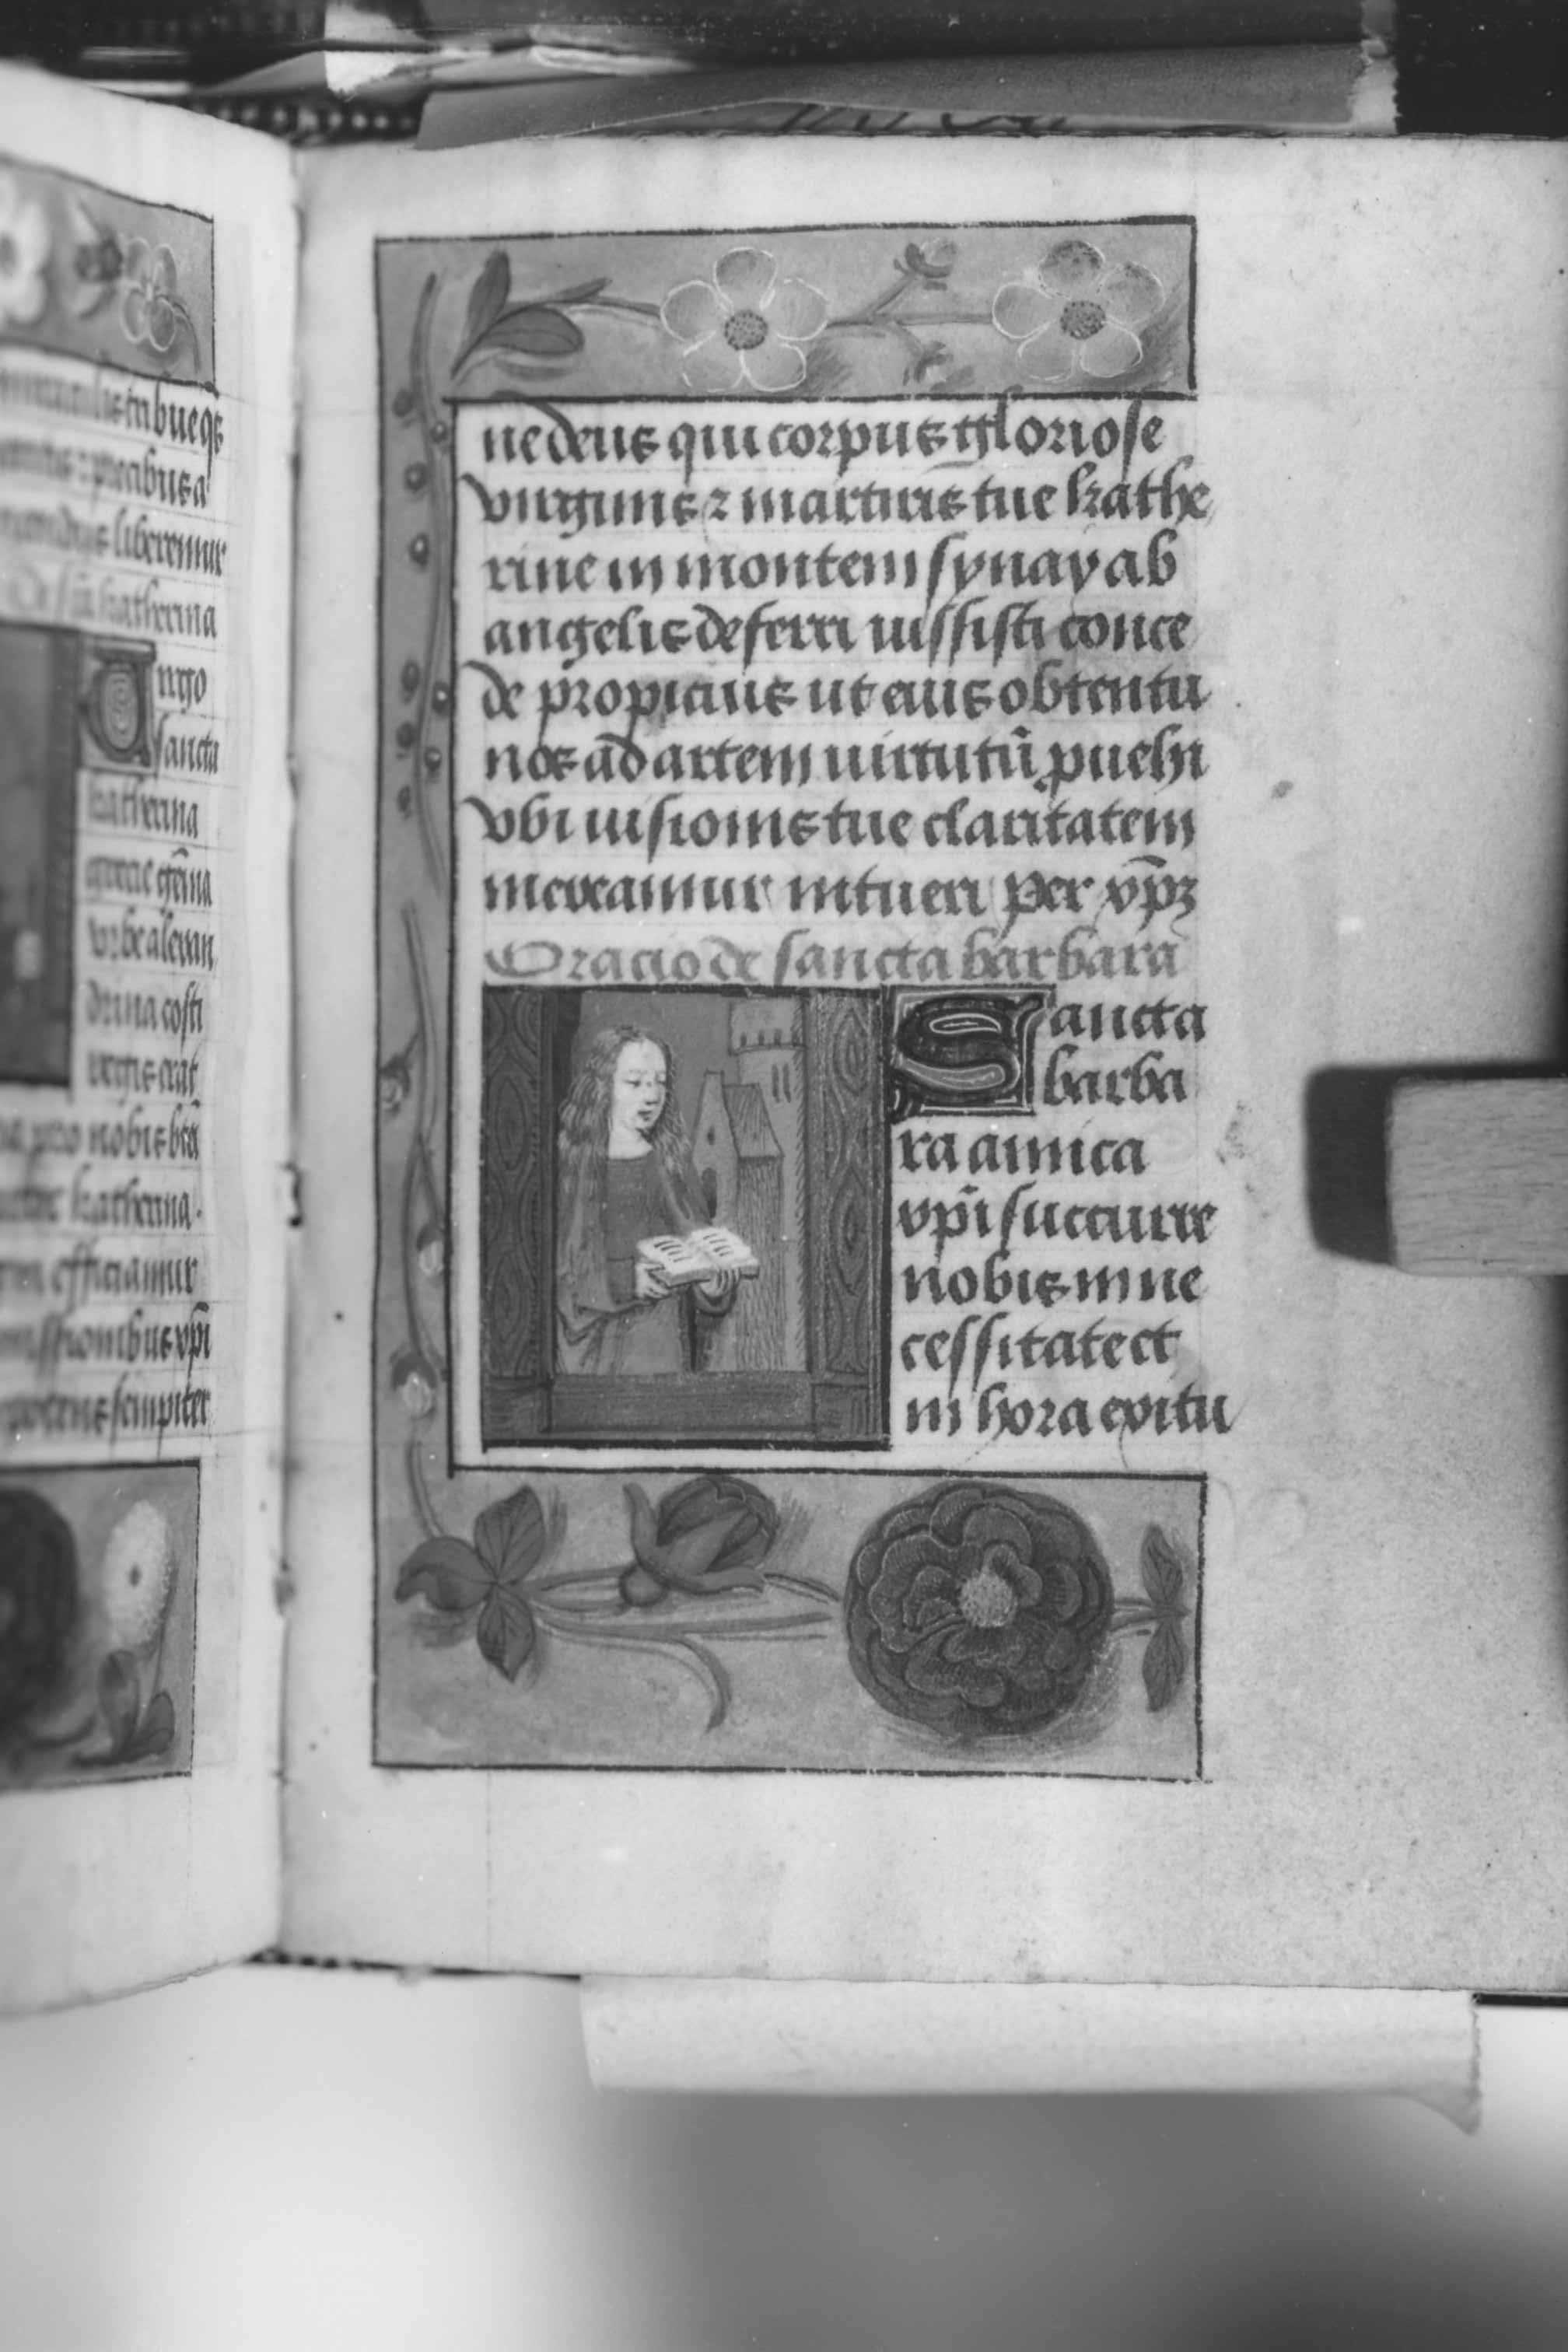 inbueqz
precibus a
liberemur
De sca katherina
Uirgo
sancta
katherina
grecie gēma
urbe alexan
drina costi
regis erat
ra pro nobis btā
katherina.
efficiamur
missionibus xp̄i
potens sempiter
ne deus qui corpus gloriose
virginis ⁊ martiris tue kathe
rine in montem synay ab
angelis deferri iussisti conce
de propicius ut eius obtentu
nos ad artem uirtutū puehi
vbi uisionis tue claritatem
mereamur intueri per xp̄ꝫ
Oracio de sancta barbara
Sancta
barba
ra amica
xp̄i succurre
nobis in ne
cessitate et
in hora exitu